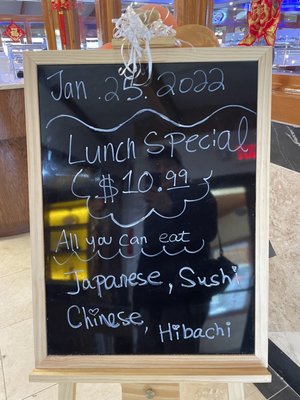 Jan. 25. 2022
Lunch Special
$10.99
All you can eat
Japanese, Sushi
Chinese, Hibachi